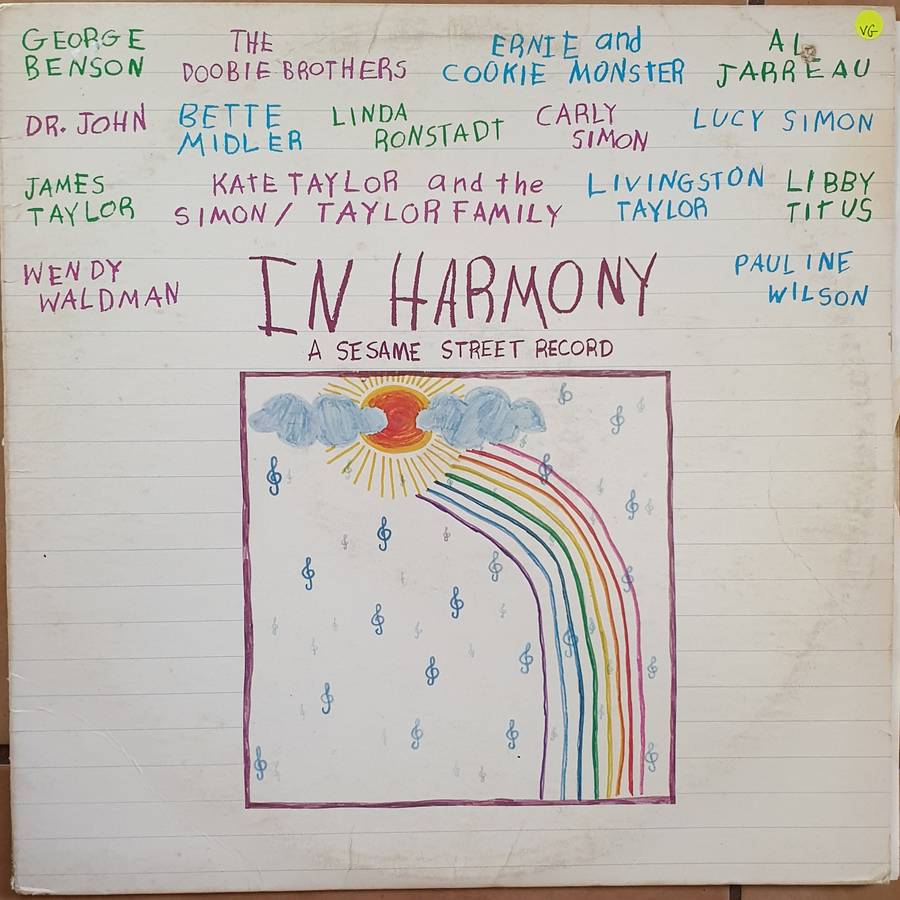 GEORGE BENSON
THE DOOBIE BROTHERS
ERNIE and COOKIE MONSTER
AL JARREAU
VG
DR. JOHN
BETTE MIDLER
LINDA RONSTADT
CARLY SIMON
LUCY SIMON
JAMES TAYLOR
KATE TAYLOR and the SIMON/TAYLOR FAMILY
LIVINGSTON TAYLOR
LIBBY TITUS
WENDY WALDMAN
IN HARMONY
PAULINE WILSON
A SESAME STREET RECORD